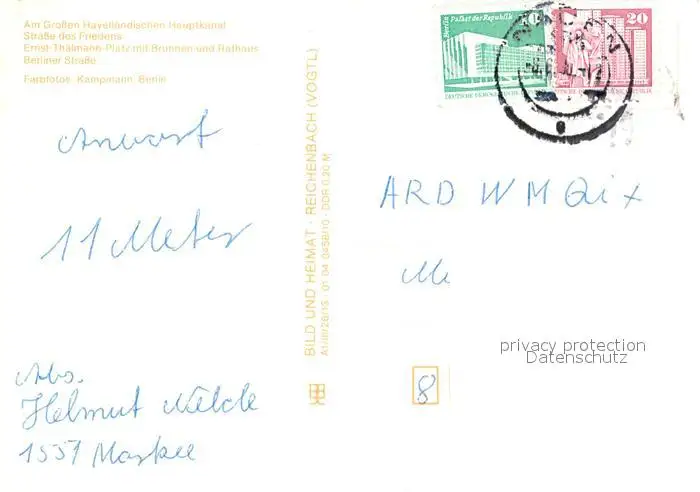 Am Großen Havelländischen Hauptkanal
Straße des Friedens
Ernst-Thälmann-Platz mit Brunnen und Rathaus
Berliner Straße
Farbfotos: Kampmann, Berlin
Antwort
11 Meter
Abs.
Helmut
1551 Markee
BILD UND HEIMAT · REICHENBACH (VOGTL)
A1/III/26/15 · 01 04 0458/10 · DDR 0,20 M
Berlin Palast der Republik
10
DEUTSCHE DEMOKRATISCHE REPUBLIK
20
NAUEN
ARD WM Quix
privacy protection
Datenschutz
8